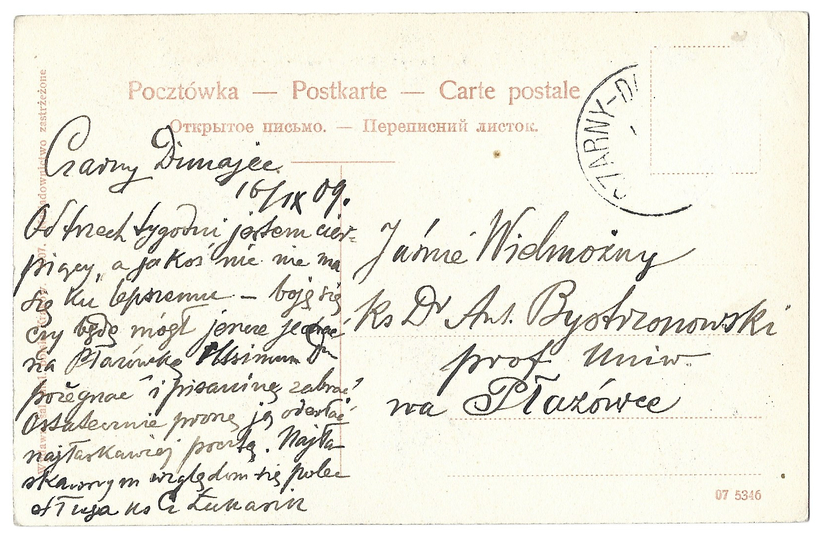 Pocztówka — Postkarte — Carte postale
Открытое письмо. — Переписний листок.
CZARNY-DU
Czarny Dunajec
16/IX 09.
Od trzech tygodni jestem cier-
piący, a jakoś nic nie ma
się ku lepszemu – boję się
czy będę mógł jeszcze jechać
na Płazówkę
pożegnać i pisaninę zabrać
Ostatecznie proszę ją odesłać
najłaskawiej pocztą. Najła-
skawszym względom się polec
sługa ks
Jaśnie Wielmożny
ks Dr Ant. Bystrzonowski
prof. Uniw.
na Płazówce
07 5346